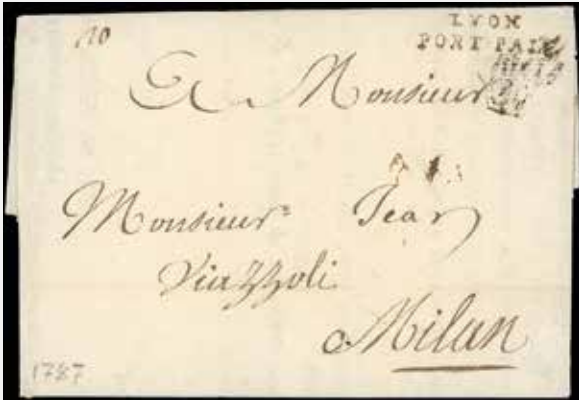 LYON
PORT PAIÉ
A Monsieur
Monsieur Jean
Viazzoli
Milan
1787